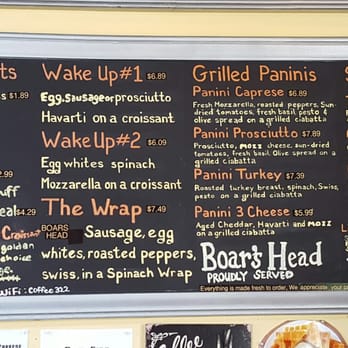 ts
$1.89
2.99
uff
eal $4.29
Croissant
golden
choice
WiFi: Coffee322
Wake Up #1 $6.89
Egg, sausage or prosciutto
Havarti on a croissant
Wake Up #2 $6.09
Egg whites spinach
Mozzarella on a croissant
The Wrap $7.49
BOARS HEAD Sausage, egg
whites, roasted peppers,
swiss, in a Spinach Wrap
Grilled Paninis
Panini Caprese $6.89
Fresh Mozzarella, roasted peppers, Sun-
dried tomatoes, fresh basil, pesto &
olive spread on a grilled ciabatta
Panini Prosciutto $7.89
Prosciutto, mozz cheese, sun-dried
tomatoes, fresh basil, Olive spread on
a grilled ciabatta
Panini Turkey $7.39
Roasted turkey breast, spinach, Swiss,
pesto on a grilled ciabatta
Panini 3 Cheese $5.99
Aged Cheddar, Havarti and mozz
on a grilled ciabatta
Boar's Head
PROUDLY SERVED
Everything is made fresh to order, We appreciate your pa
Coffee